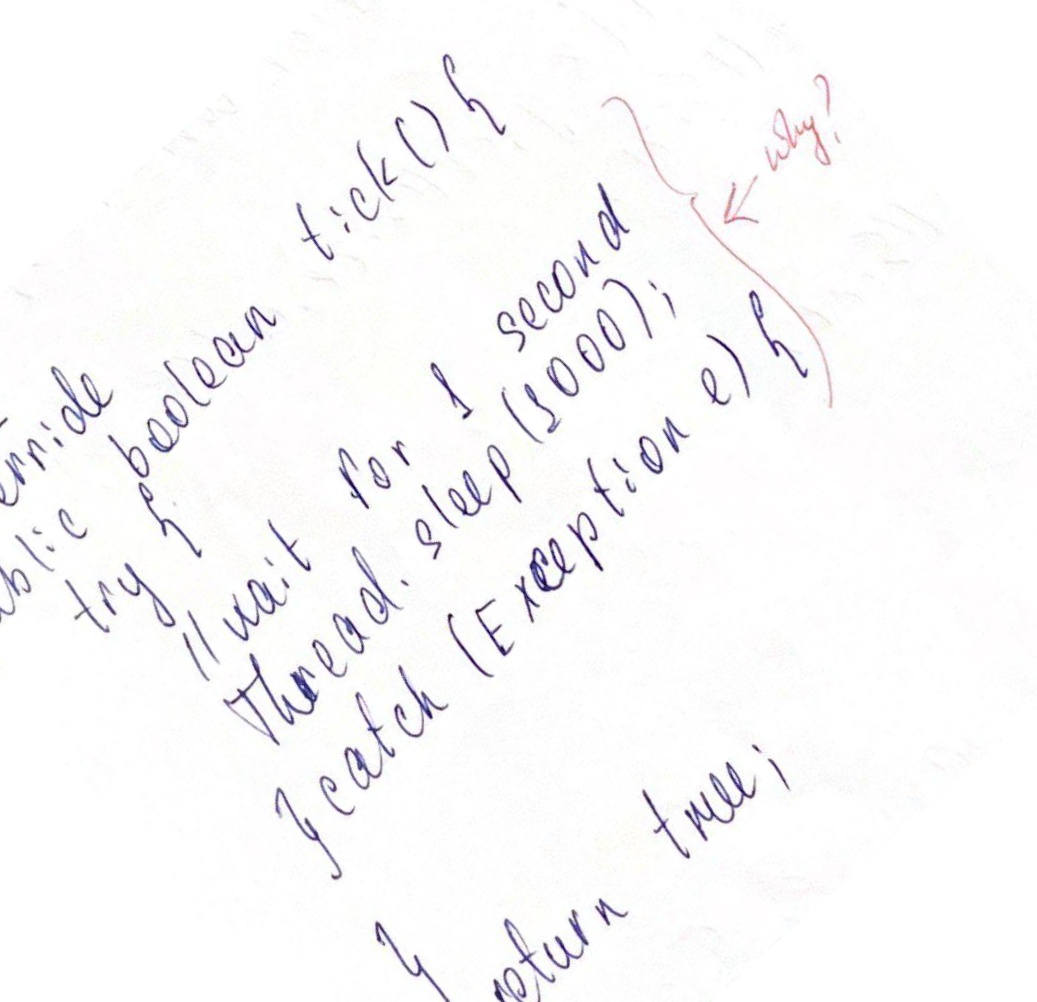 erride
ublic boolean tick() {
try {
// wait for 1 second
Thread.sleep(1000);
} catch (Exception e) {
}
return true;
why?